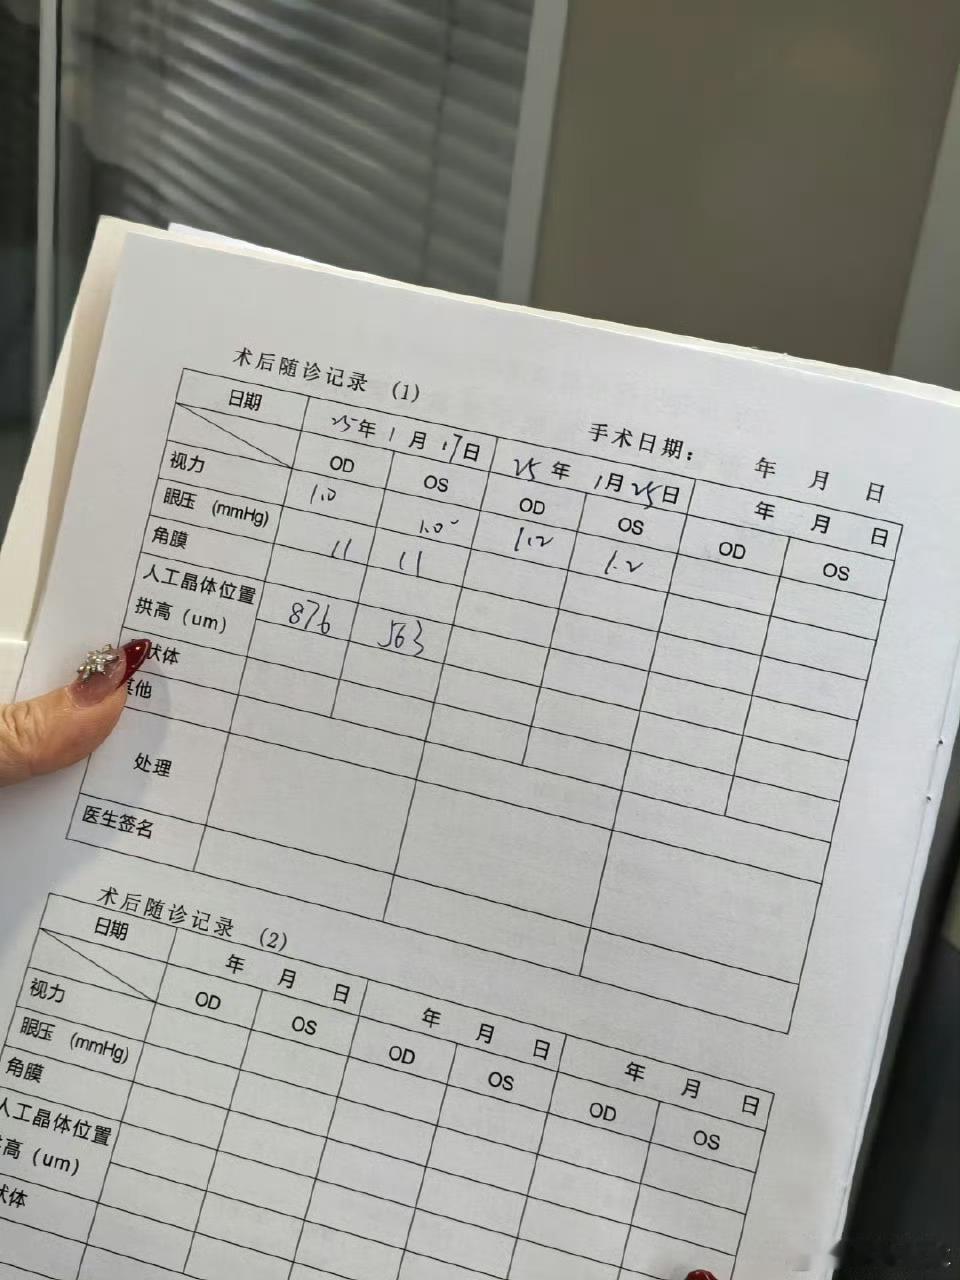 术后随诊记录 (1)
手术日期： 年 月 日
日期 25年 1月 17日 25年 1月 25日 年 月 日
OD OS OD OS OD OS
视力 1.0 1.0 1.2 1.2
眼压 (mmHg) 11 11
角膜
人工晶体位置
拱高（um） 876 563
状体
其他
处理
医生签名
术后随诊记录 (2)
日期 年 月 日 年 月 日 年 月 日
OD OS OD OS OD OS
视力
眼压 (mmHg)
角膜
人工晶体位置
高（um）
状体